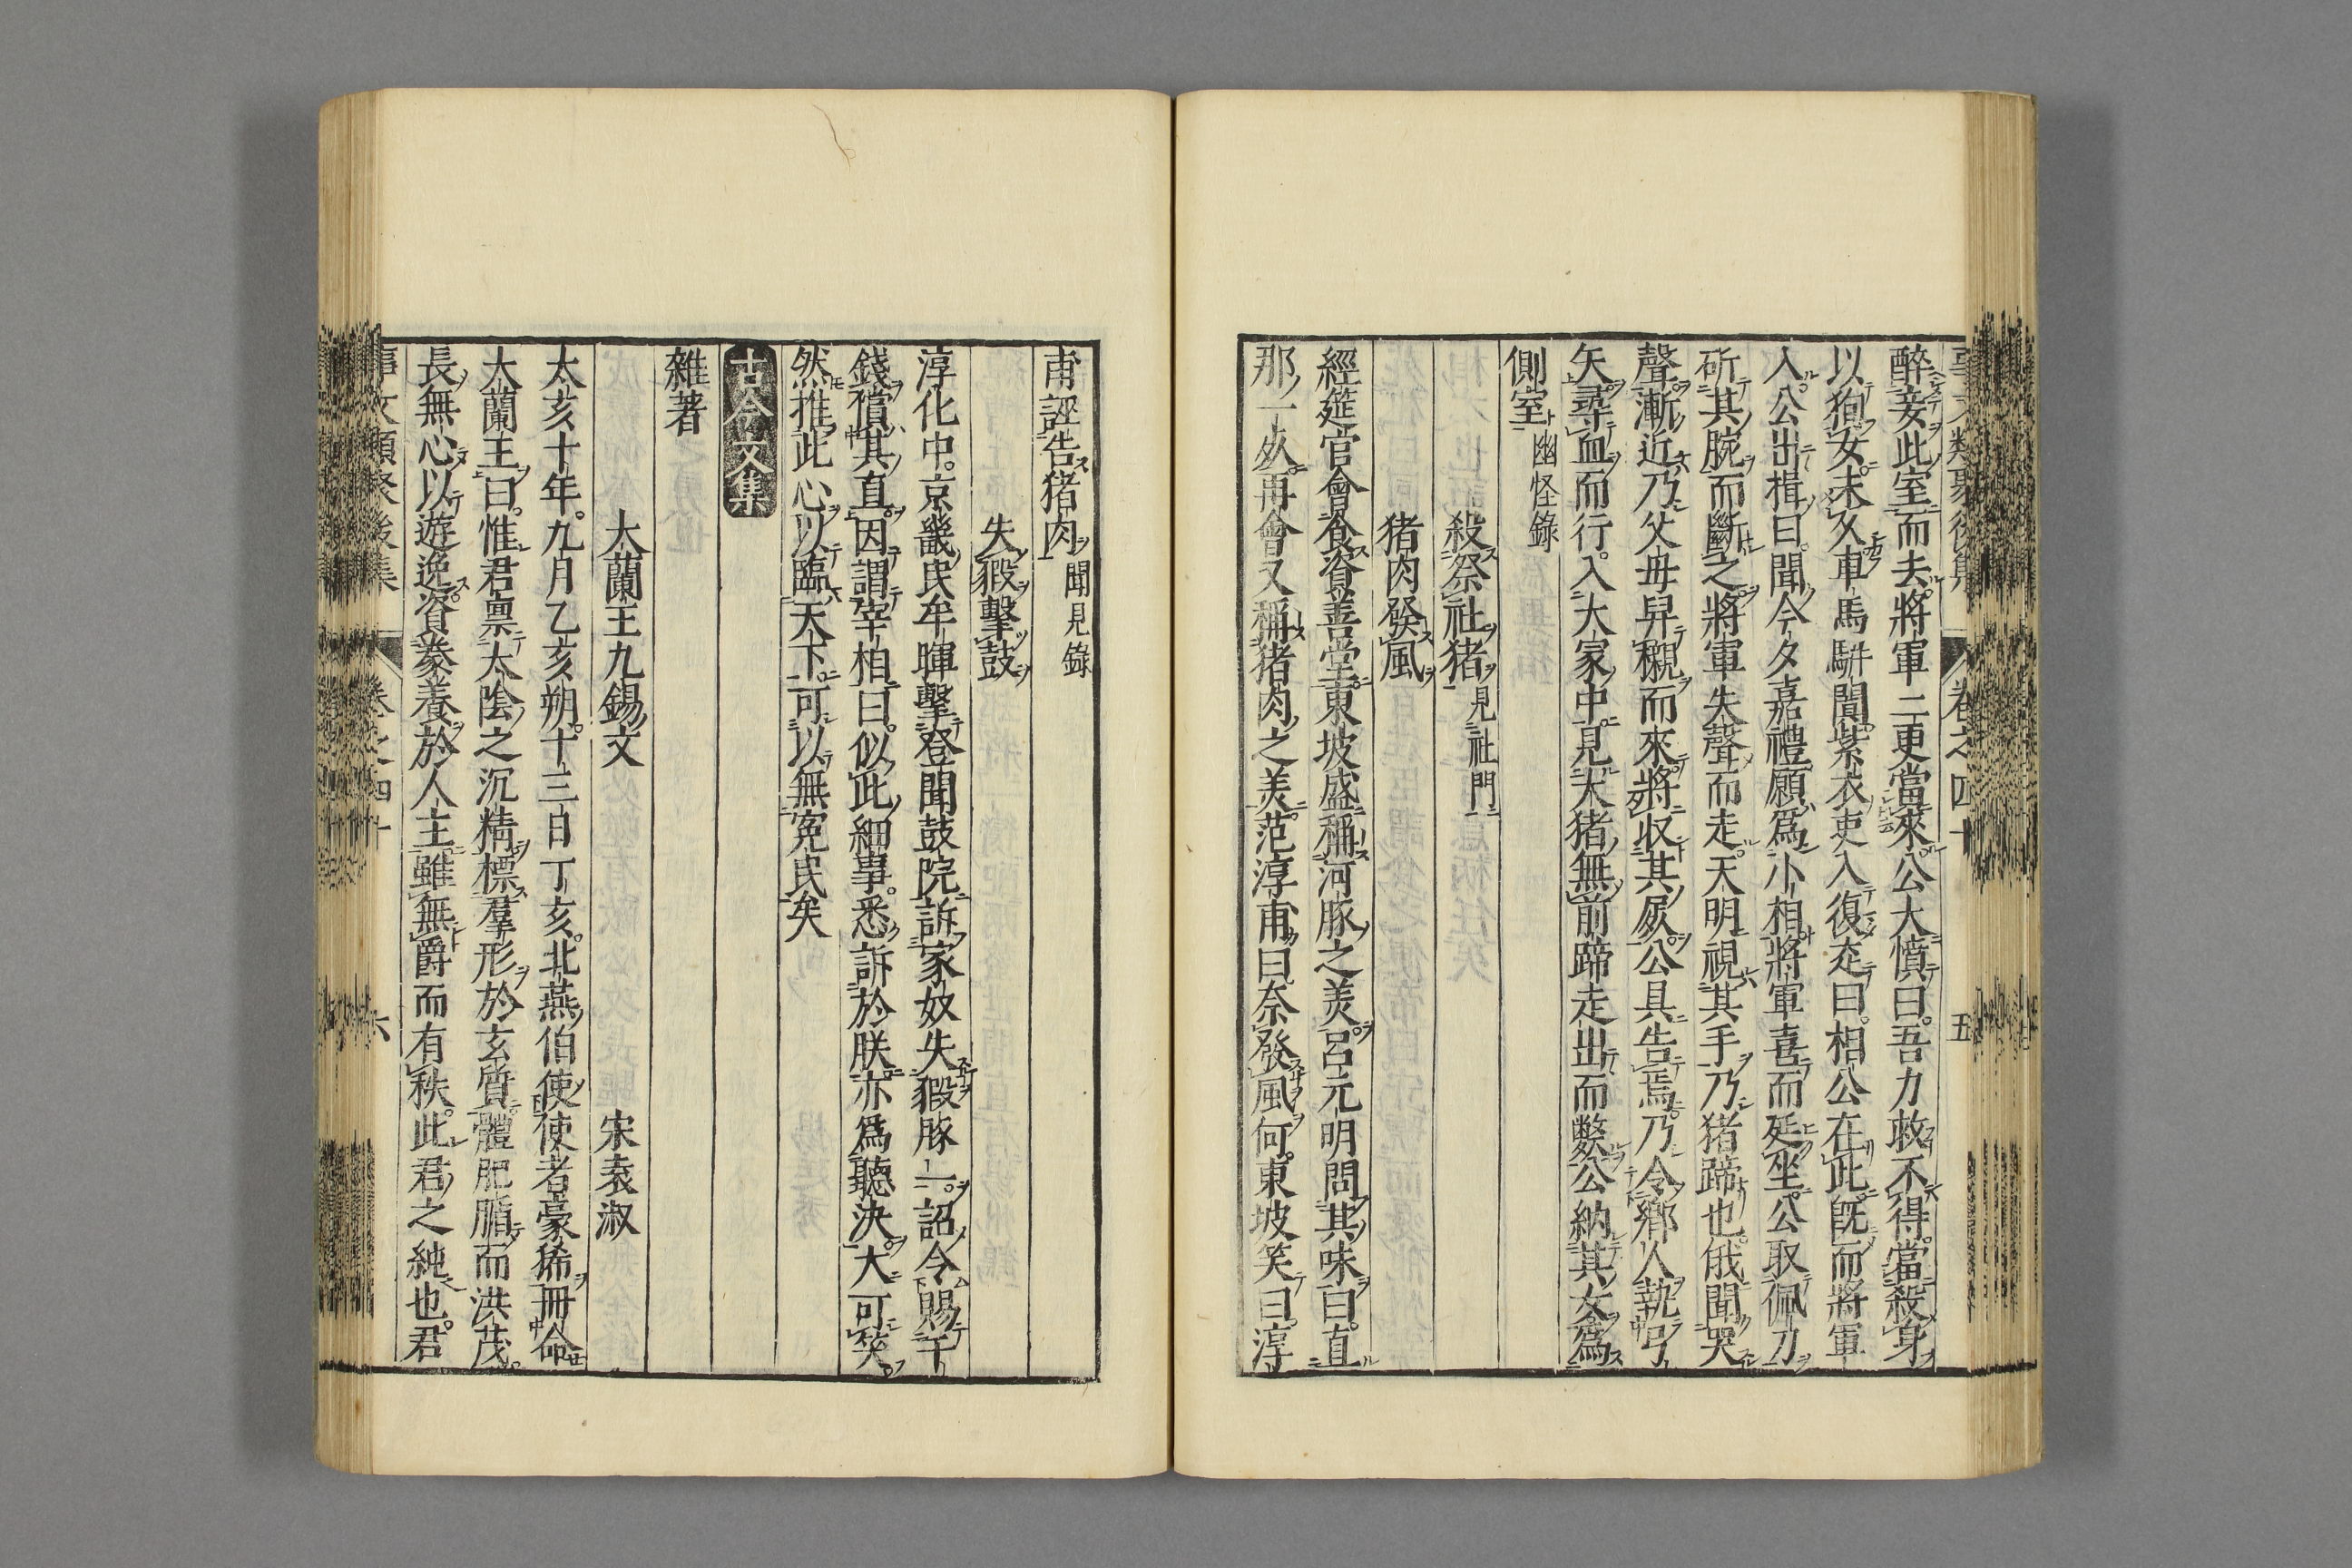 醉妾此室而去將軍二更當來公大憤曰吾力救不得當殺身
以狥女未久車馬駢闐紫衣吏入復走曰相公在此旣而將軍
入公出揖曰聞今夕嘉禮願爲小相將軍喜而延坐公取佩刀
斫其腕而斷之將軍失聲而走天明視其手乃猪蹄也俄聞哭
聲漸近乃父母舁櫬而來將収其屍公具告焉乃令鄉人執弓
矢尋血而行入大冢中見大猪無前蹄走出而斃公納其女爲
側室幽怪錄
殺祭社猪見社門
猪肉發風
經筵官會食資善堂東坡盛稱河豚之美呂元明問其味曰直
那一死再會又稱猪肉之美范淳甫曰奈發風何東坡笑曰淳
卷之四十
五
甫誣告猪肉聞見錄
失豭擊鼓
淳化中京畿民牟暉擊登聞鼓院訴家奴失豭豚一詔令賜千
錢償其直因謂宰相曰似此細事悉訴於朕亦爲聽決大可笑
然推此心以臨天下可以無寃民矣
古今文集
雜著
大蘭王九錫文
宋袁淑
太亥十年九月乙亥朔十三日丁亥北燕伯使使者豪豨冊命
大蘭王曰惟君禀太陰之沉精標羣形於玄質體肥腯而洪茂
長無心以遊逸資豢養於人主雖無爵而有秩此君之純也君
六